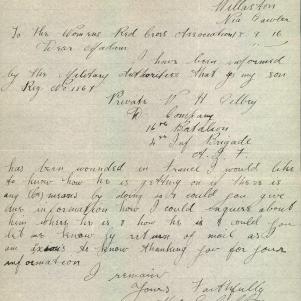 Willaston
Via Gawler
To the Womens Red Cross Association 8 9 16
Dear Madam
I have been informed
by the Military Authorities that my son
Reg No 1164
Private W H Gilbey
D Company
16th Batalion
4th Inf Brigade
A I F
has been wounded in france I would like
to know how he is getting on if there is
any means by doing is could you give
me information how I could enquire about
him where he is & how he is I could you
let me know by return of mail as i
am to know thanking you for your
information
I remain
Yours Faithfully